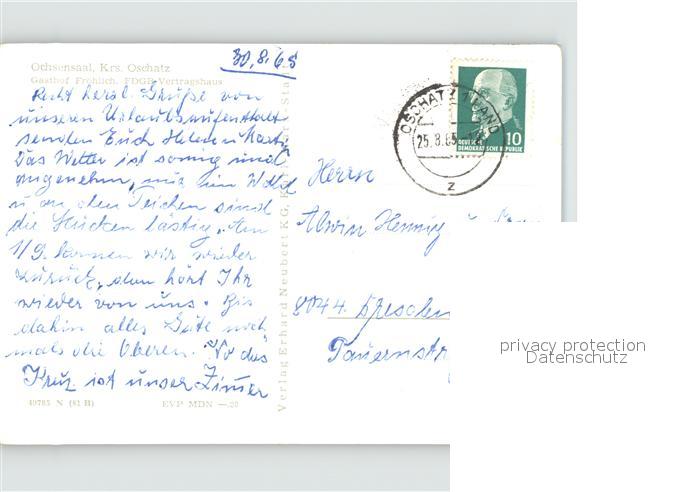 30.8.65
Ochsensaal, Krs. Oschatz
Gasthof Fröhlich, FDGB-Vertragshaus
Recht herzl. Grüße von
unseren Urlaubsaufenthalt
senden Euch Helene u.
Das Wetter ist sonnig und
angenehm, nur im Wald
u an den Teichen sind
die Mücken lästig. Am
1/9. kommen wir wieder
zurück, dann hört Ihr
wieder von uns. Bis
dahin alles Gute noch
mals die Oberen. Wo das
Kreuz ist unser Zimmer
49785 N (81 B) EVP MDN —.20
Verlag Erhard Neubert KG,
OSCHATZ LAND
25.8.65
z
10
DEUTSCHE
DEMOKRATISCHE REPUBLIK
Herrn
Alwin Hennig u.
8044. Dresden
Tauernstr
privacy protection
Datenschutz